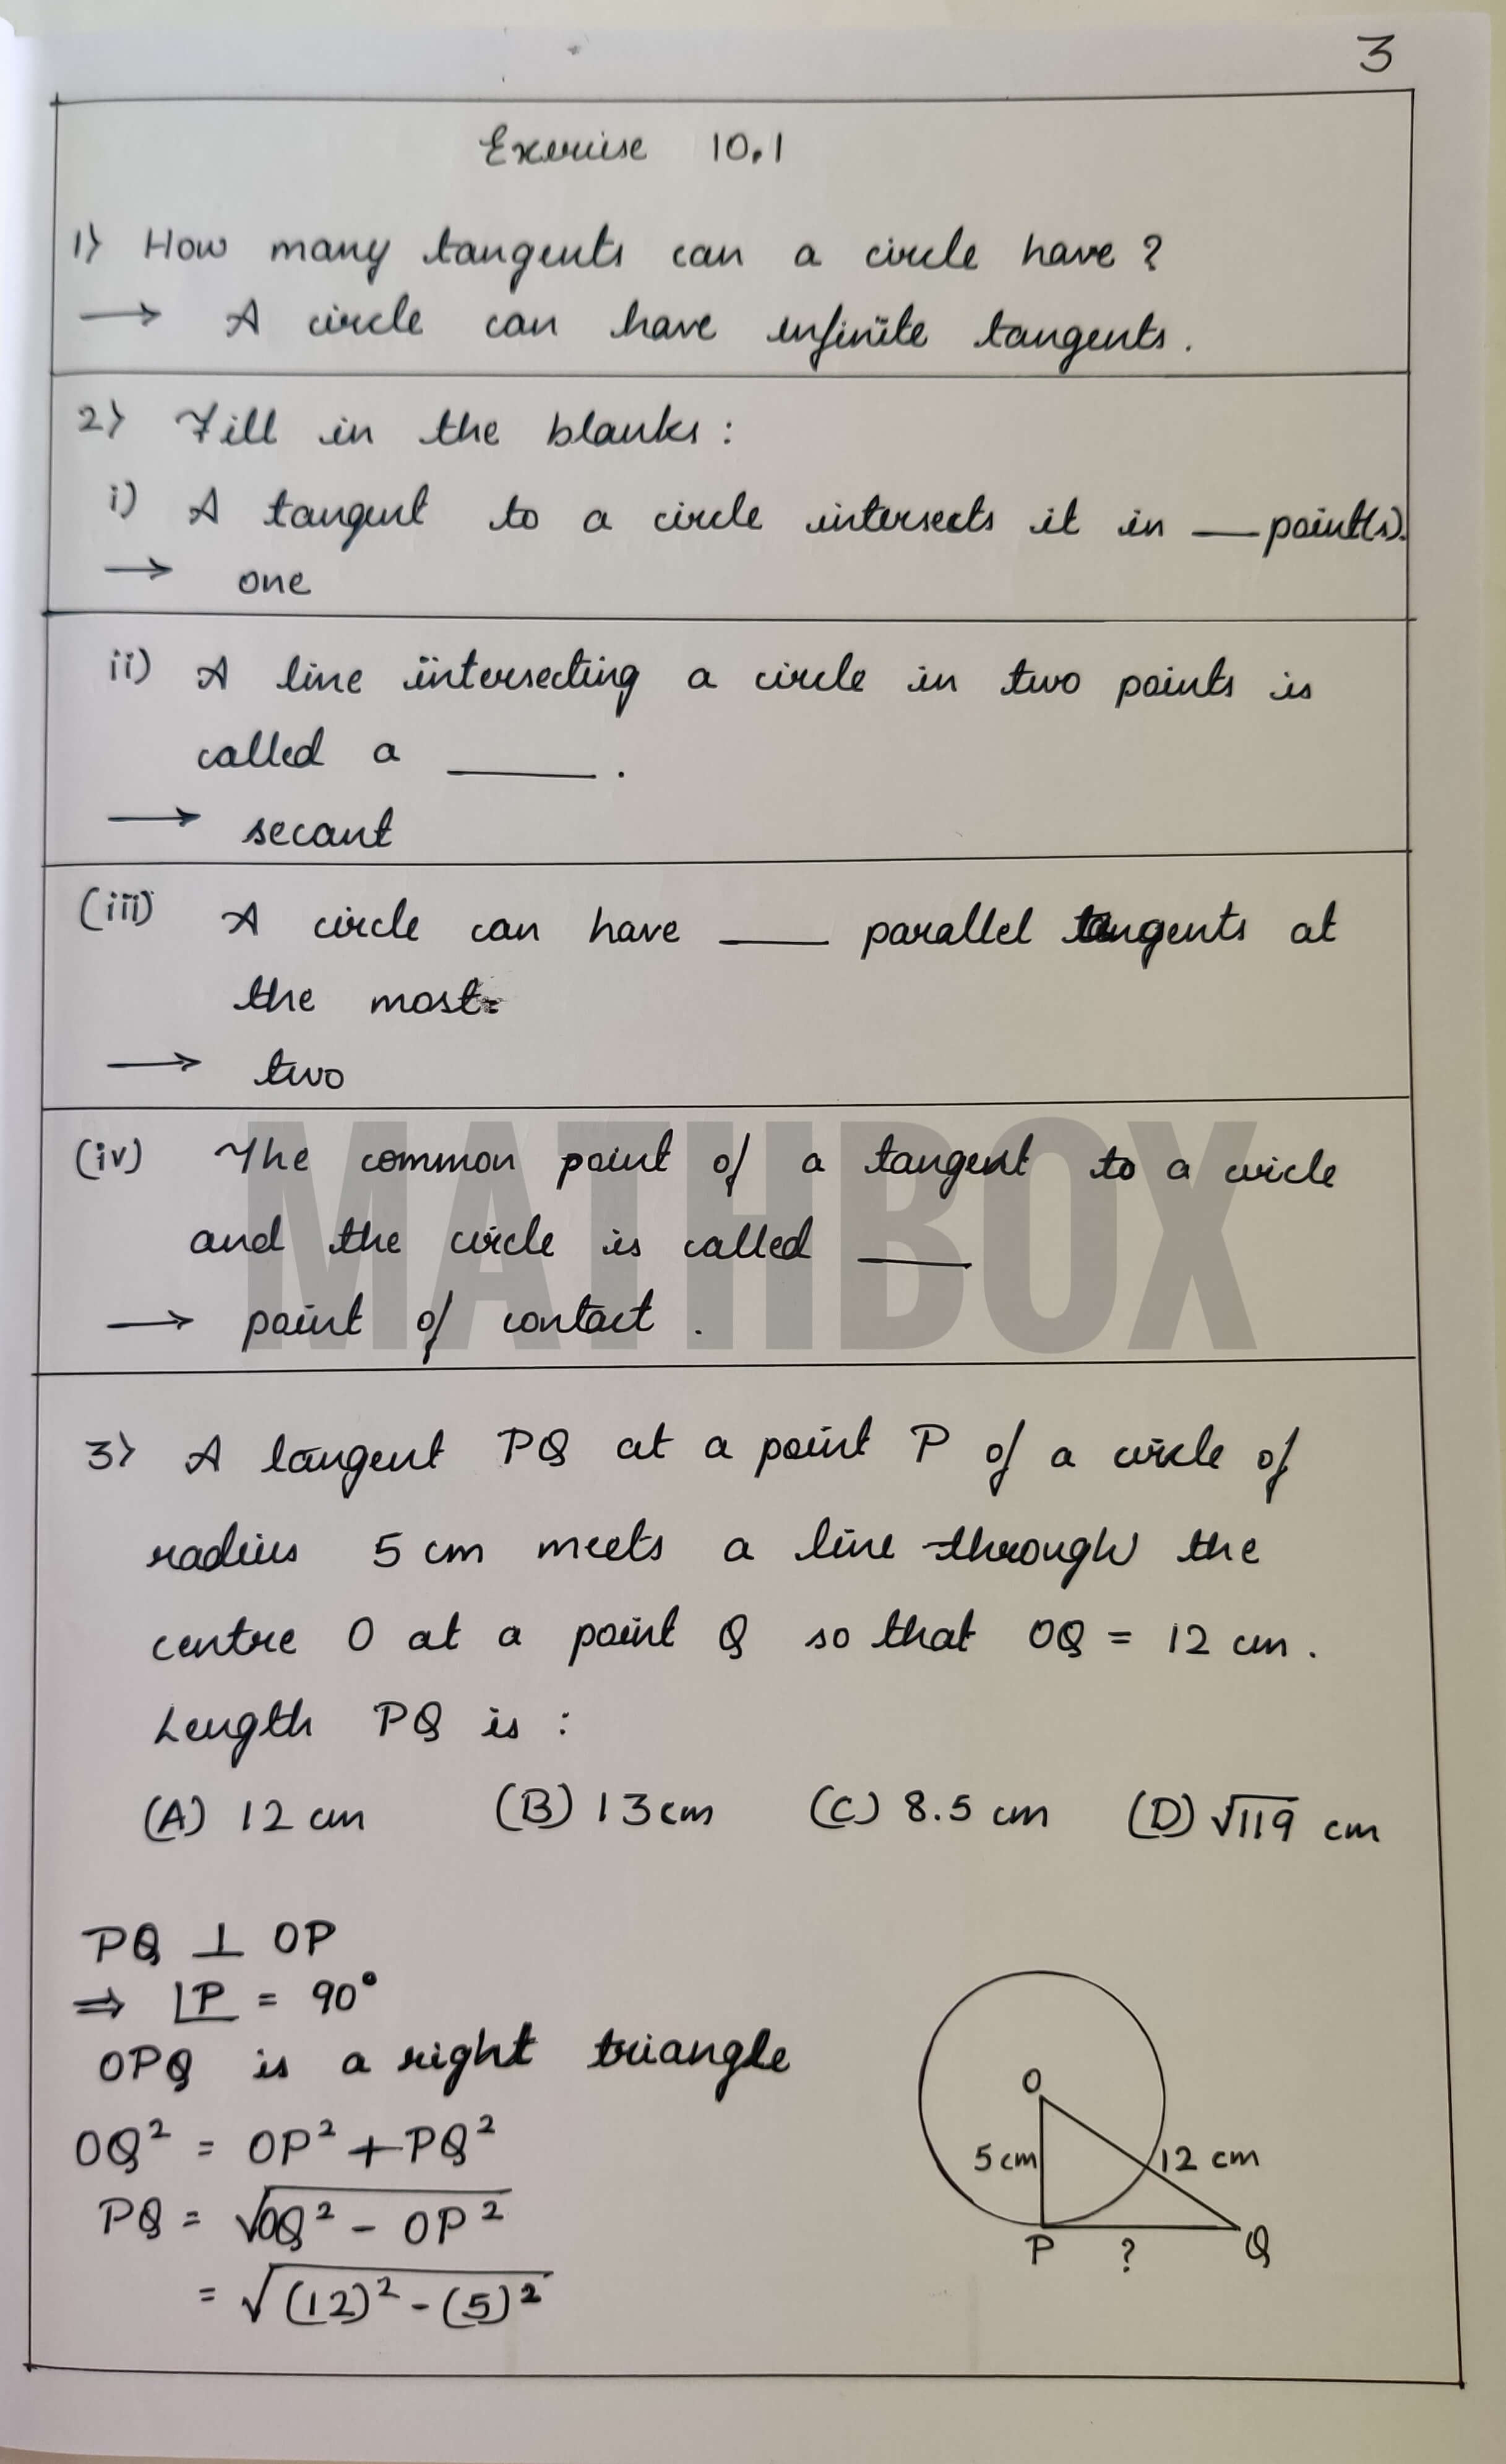 3
Exercise 10.1
1) How many tangents can a circle have ?
→ A circle can have infinite tangents .
2) Fill in the blanks :
i) A tangent to a circle intersects it in __ point(s).
→ one
ii) A line intersecting a circle in two points is
called a ____ .
→ secant
(iii) A circle can have ___ parallel tangents at
the most.
→ two
(iv) The common point of a tangent to a circle
and the circle is called ___
→ point of contact .
MATHBOX
3) A tangent PQ at a point P of a circle of
radius 5 cm meets a line through the
centre O at a point Q so that OQ = 12 cm .
Length PQ is :
(A) 12 cm (B) 13 cm (C) 8.5 cm (D) √119 cm
PQ ⊥ OP
⇒ ∠P = 90°
OPQ is a right triangle
OQ² = OP² + PQ²
PQ = √OQ² - OP²
= √(12)² - (5)²
O
5 cm 12 cm
P ? Q